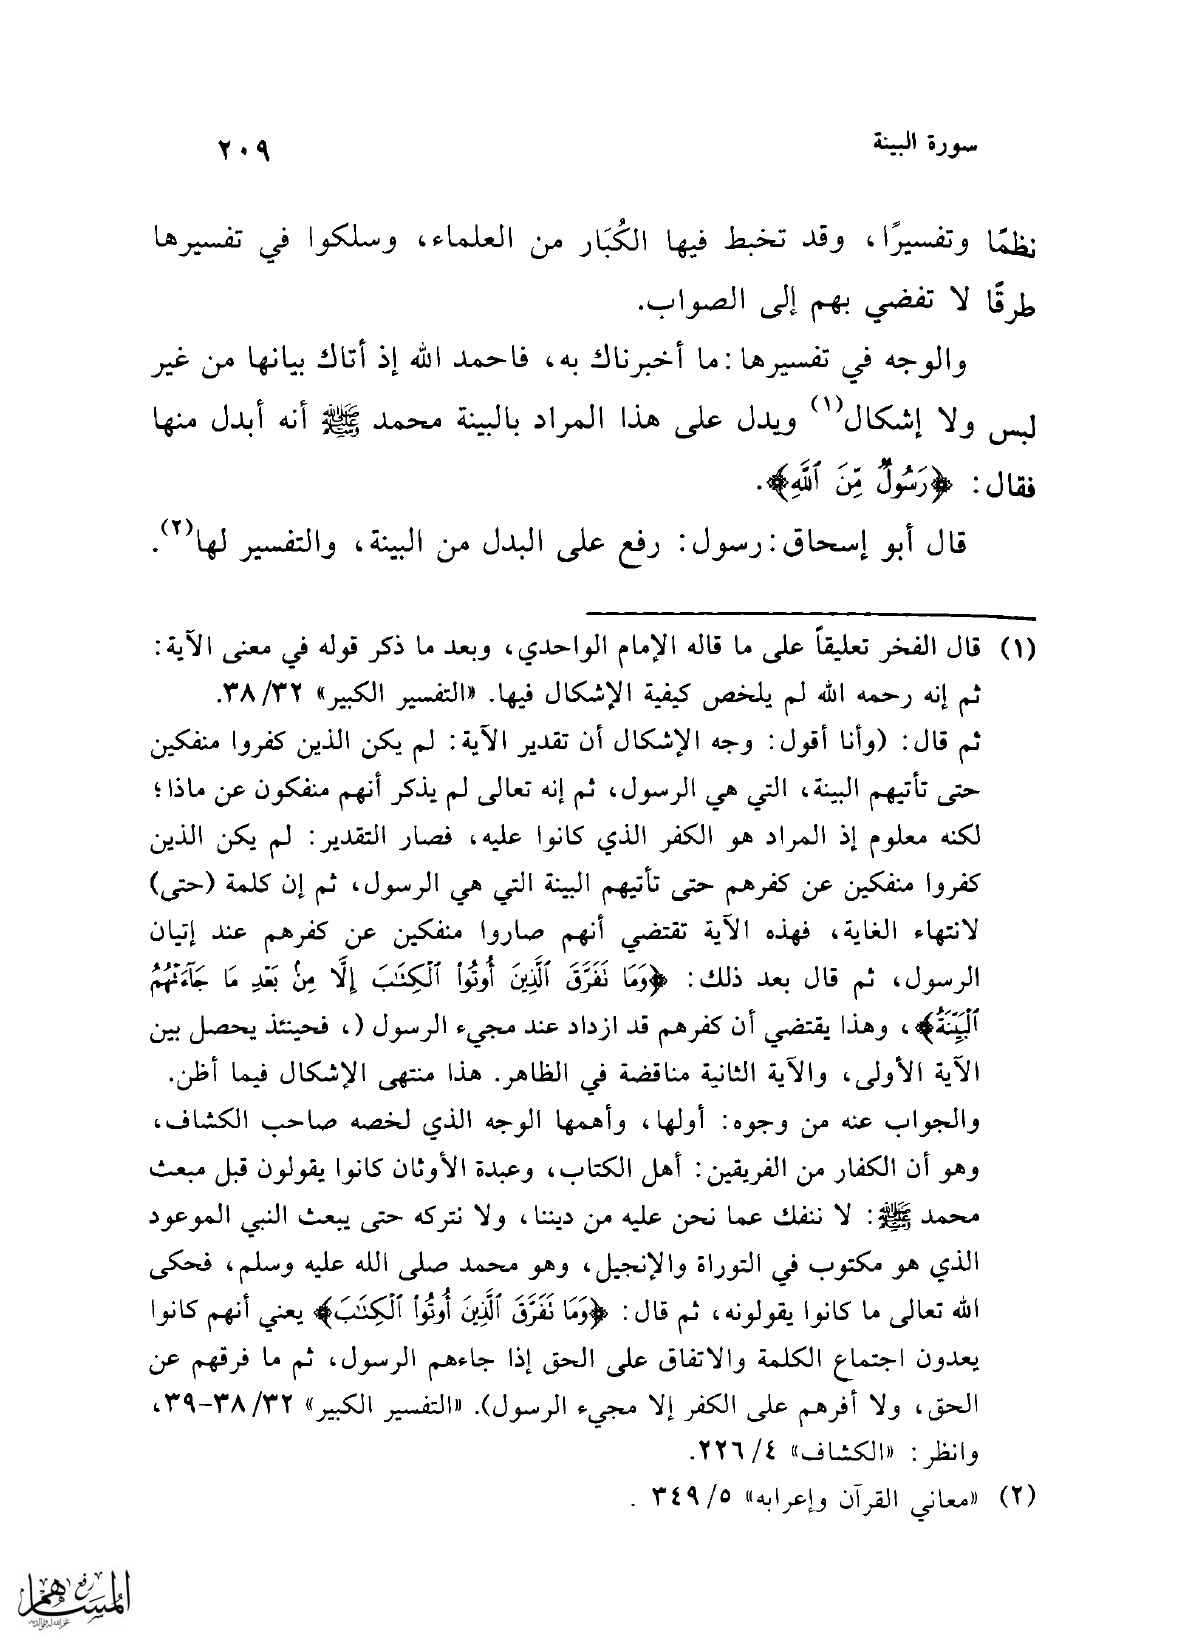 سورة البينة ٢٠٩
نظمًا وتفسيرًا، وقد تخبط فيها الكُبَار من العلماء، وسلكوا في تفسيرها
طرقًا لا تفضي بهم إلى الصواب.
والوجه في تفسيرها: ما أخبرناك به، فاحمد الله إذ أتاك بيانها من غير
لبس ولا إشكال(١) ويدل على هذا المراد بالبينة محمد ﷺ أنه أبدل منها
فقال: ﴿رَسُولٌ مِّنَ ٱللَّهِ﴾.
قال أبو إسحاق: رسول: رفع على البدل من البينة، والتفسير لها(٢).
(١) قال الفخر تعليقاً على ما قاله الإمام الواحدي، وبعد ما ذكر قوله في معنى الآية:
ثم إنه رحمه الله لم يلخص كيفية الإشكال فيها. «التفسير الكبير» ٣٢/ ٣٨.
ثم قال: (وأنا أقول: وجه الإشكال أن تقدير الآية: لم يكن الذين كفروا منفكين
حتى تأتيهم البينة، التي هي الرسول، ثم إنه تعالى لم يذكر أنهم منفكون عن ماذا؛
لكنه معلوم إذ المراد هو الكفر الذي كانوا عليه، فصار التقدير: لم يكن الذين
كفروا منفكين عن كفرهم حتى تأتيهم البينة التي هي الرسول، ثم إن كلمة (حتى)
لانتهاء الغاية، فهذه الآية تقتضي أنهم صاروا منفكين عن كفرهم عند إتيان
الرسول، ثم قال بعد ذلك: ﴿وَمَا نَفَرَّقَ ٱلَّذِينَ أُوتُواْ ٱلْكِتَٰبَ إِلَّا مِنۢ بَعْدِ مَا جَآءَتْهُمُ
ٱلْبَيِّنَةُ﴾، وهذا يقتضي أن كفرهم قد ازداد عند مجيء الرسول (، فحينئذ يحصل بين
الآية الأولى، والآية الثانية مناقضة في الظاهر. هذا منتهى الإشكال فيما أظن.
والجواب عنه من وجوه: أولها، وأهمها الوجه الذي لخصه صاحب الكشاف،
وهو أن الكفار من الفريقين: أهل الكتاب، وعبدة الأوثان كانوا يقولون قبل مبعث
محمد ﷺ: لا ننفك عما نحن عليه من ديننا، ولا نتركه حتى يبعث النبي الموعود
الذي هو مكتوب في التوراة والإنجيل، وهو محمد صلى الله عليه وسلم، فحكى
الله تعالى ما كانوا يقولونه، ثم قال: ﴿وَمَا نَفَرَّقَ ٱلَّذِينَ أُوتُواْ ٱلْكِتَٰبَ﴾ يعني أنهم كانوا
يعدون اجتماع الكلمة والاتفاق على الحق إذا جاءهم الرسول، ثم ما فرقهم عن
الحق، ولا أفرهم على الكفر إلا مجيء الرسول). «التفسير الكبير» ٣٢/ ٣٨-٣٩،
وانظر: «الكشاف» ٤/ ٢٢٦.
(٢) «معاني القرآن وإعرابه» ٥/ ٣٤٩ .